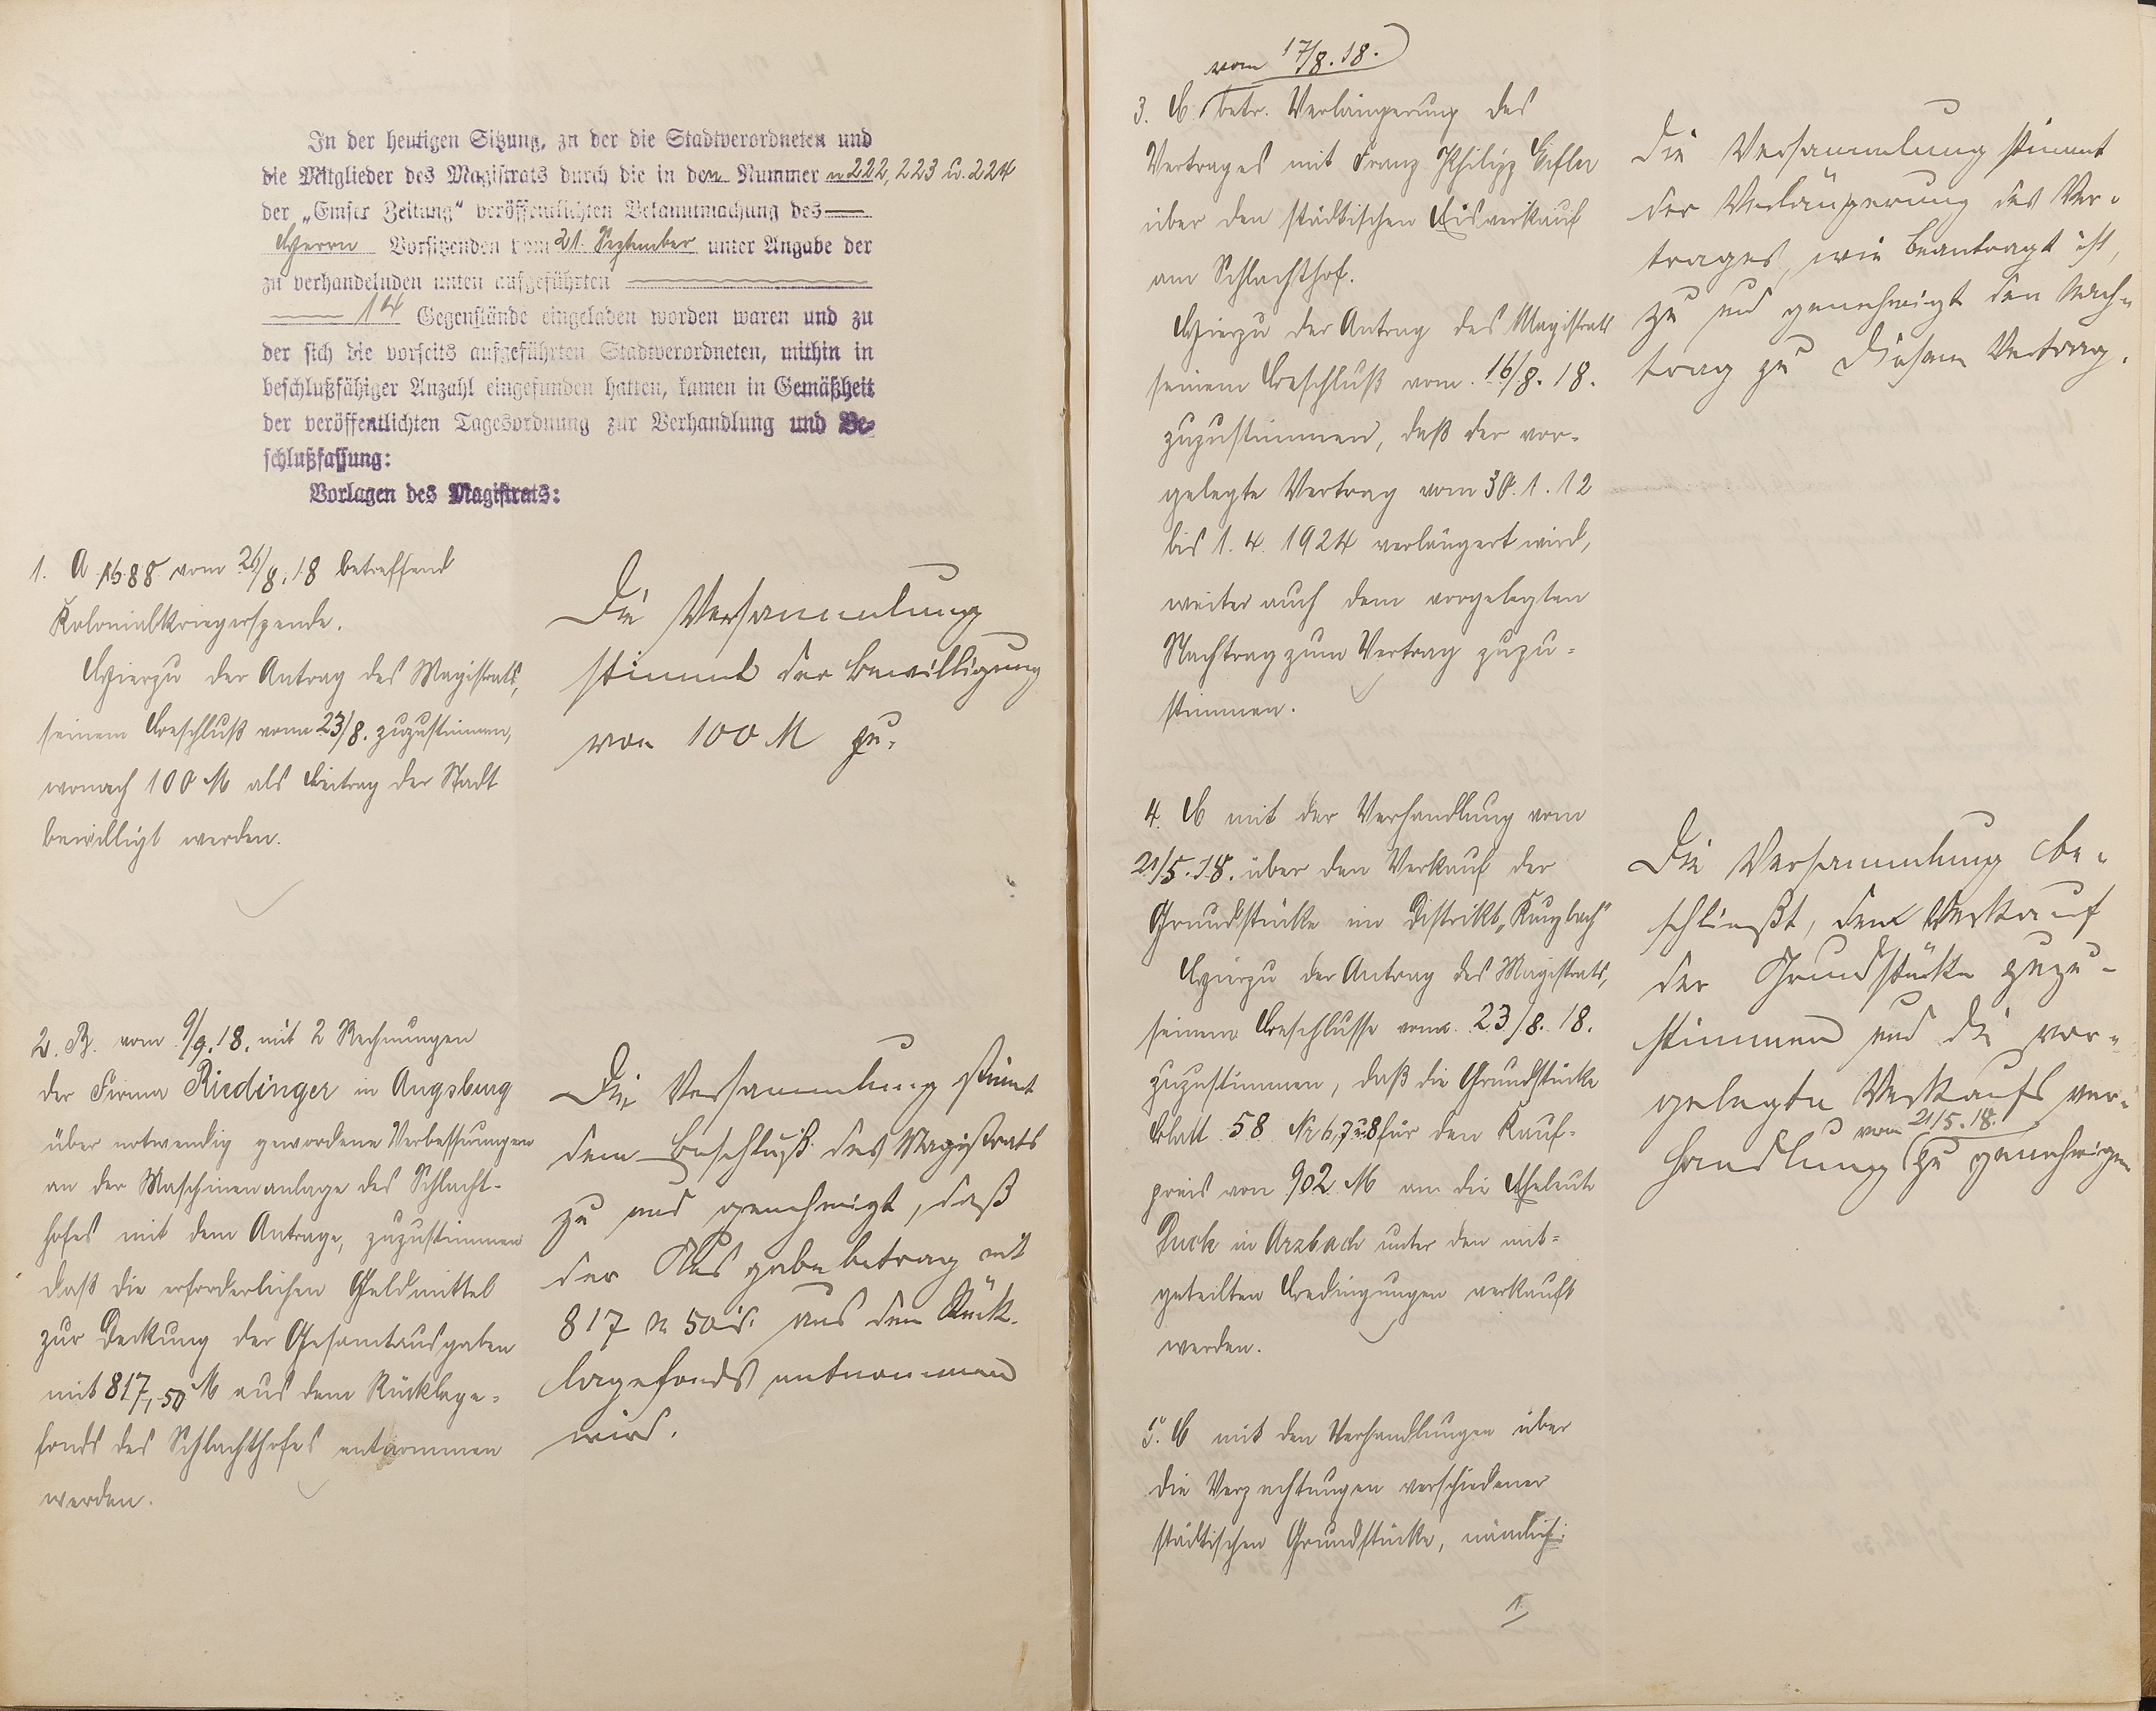 In der heutigen Sitzung, zu der die Stadtverordneten und
die Mitglieder des Magistrats durch die in den Nummern 222, 223 u. 224
der „Emser Zeitung“ veröffentlichten Bekanntmachung des
Herrn Vorsitzenden vom 21. September unter Angabe der
zu verhandelnden unten aufgeführten
14 Gegenstände eingeladen worden waren und zu
der sich die vorseits aufgeführten Stadtverordneten, mithin in
beschlußfähiger Anzahl eingefunden hatten, kamen in Gemäßheit
der veröffentlichten Tagesordnung zur Verhandlung und Be-
schlußfassung:
Vorlagen des Magistrats:
1. A 1688 vom 26/8.18 betreffend
Kolonialkriegerspende.
Hierzu der Antrag des Magistrats,
seinem Beschluß vom 23/8. zuzustimmen,
wonach 100 M als Beitrag der Stadt
bewilligt werden.
Die Versammlung
stimmt der Bewilligung
von 100 M zu.
2. B. vom 9/9.18. mit 2 Rechnungen
der Firma Riedinger in Augsburg
über notwendig gewordene Verbesserungen
an der Maschinenanlage des Schlacht-
hofes mit dem Antrage, zuzustimmen
daß die erforderlichen Geldmittel
zur Deckung der Gesamtausgaben
mit 817,50 M aus dem Rücklage-
fonds des Schlachthofes entnommen
werden.
Die Versammlung stimt
dem Beschluß des Magistrats
zu und genehmigt, daß
der Ausgabebetrag mit
817 M 50 aus dem Rück-
lagefonds entnommen
wird.
vom 17/8.18.
3. B. betr. Verlängerung des
Vertrages mit Franz Philipp
über den städtischen Eisverkauf
am Schlachthof.
Hierzu der Antrag des Magistrats
seinem Beschluß vom 16/8.18.
zuzustimmen, daß der vor-
gelegte Vertrag vom 30.1.12
bis 1.4.1924 verlängert wird,
weiter auch dem vorgelegten
Nachtrag zum Vertrag zuzu-
stimmen.
Die Versammlung stimmt
der Verlängerung des Ver-
trages, wie beantragt ist,
zu und genehmigt den Nach-
trag zu diesem Vertrag.
4. B mit der Verhandlung vom
21/5.18. über den Verkauf der
Grundstücke im Distrikt
Hierzu der Antrag des Magistrats,
seinem Beschlusse vom 23/8.18.
zuzustimmen, daß die Grundstücke
Blatt 58 Nr 6,7 u. 8 für den Kauf-
preis von 902 M an die Eheleute
in Arzbach unter den mit-
geteilten Bedingungen verkauft
werden.
Die Versammlung be-
schließt, dem Verkauf
der Grundstücke zuzu-
stimmen und die vor-
gelegte Verkaufsver-
handlung vom 21/5.18. zu genehmigen
5. B mit den Verhandlungen über
die Verpachtungen verschiedener
städtischen Grundstücke, nämlich:
1.